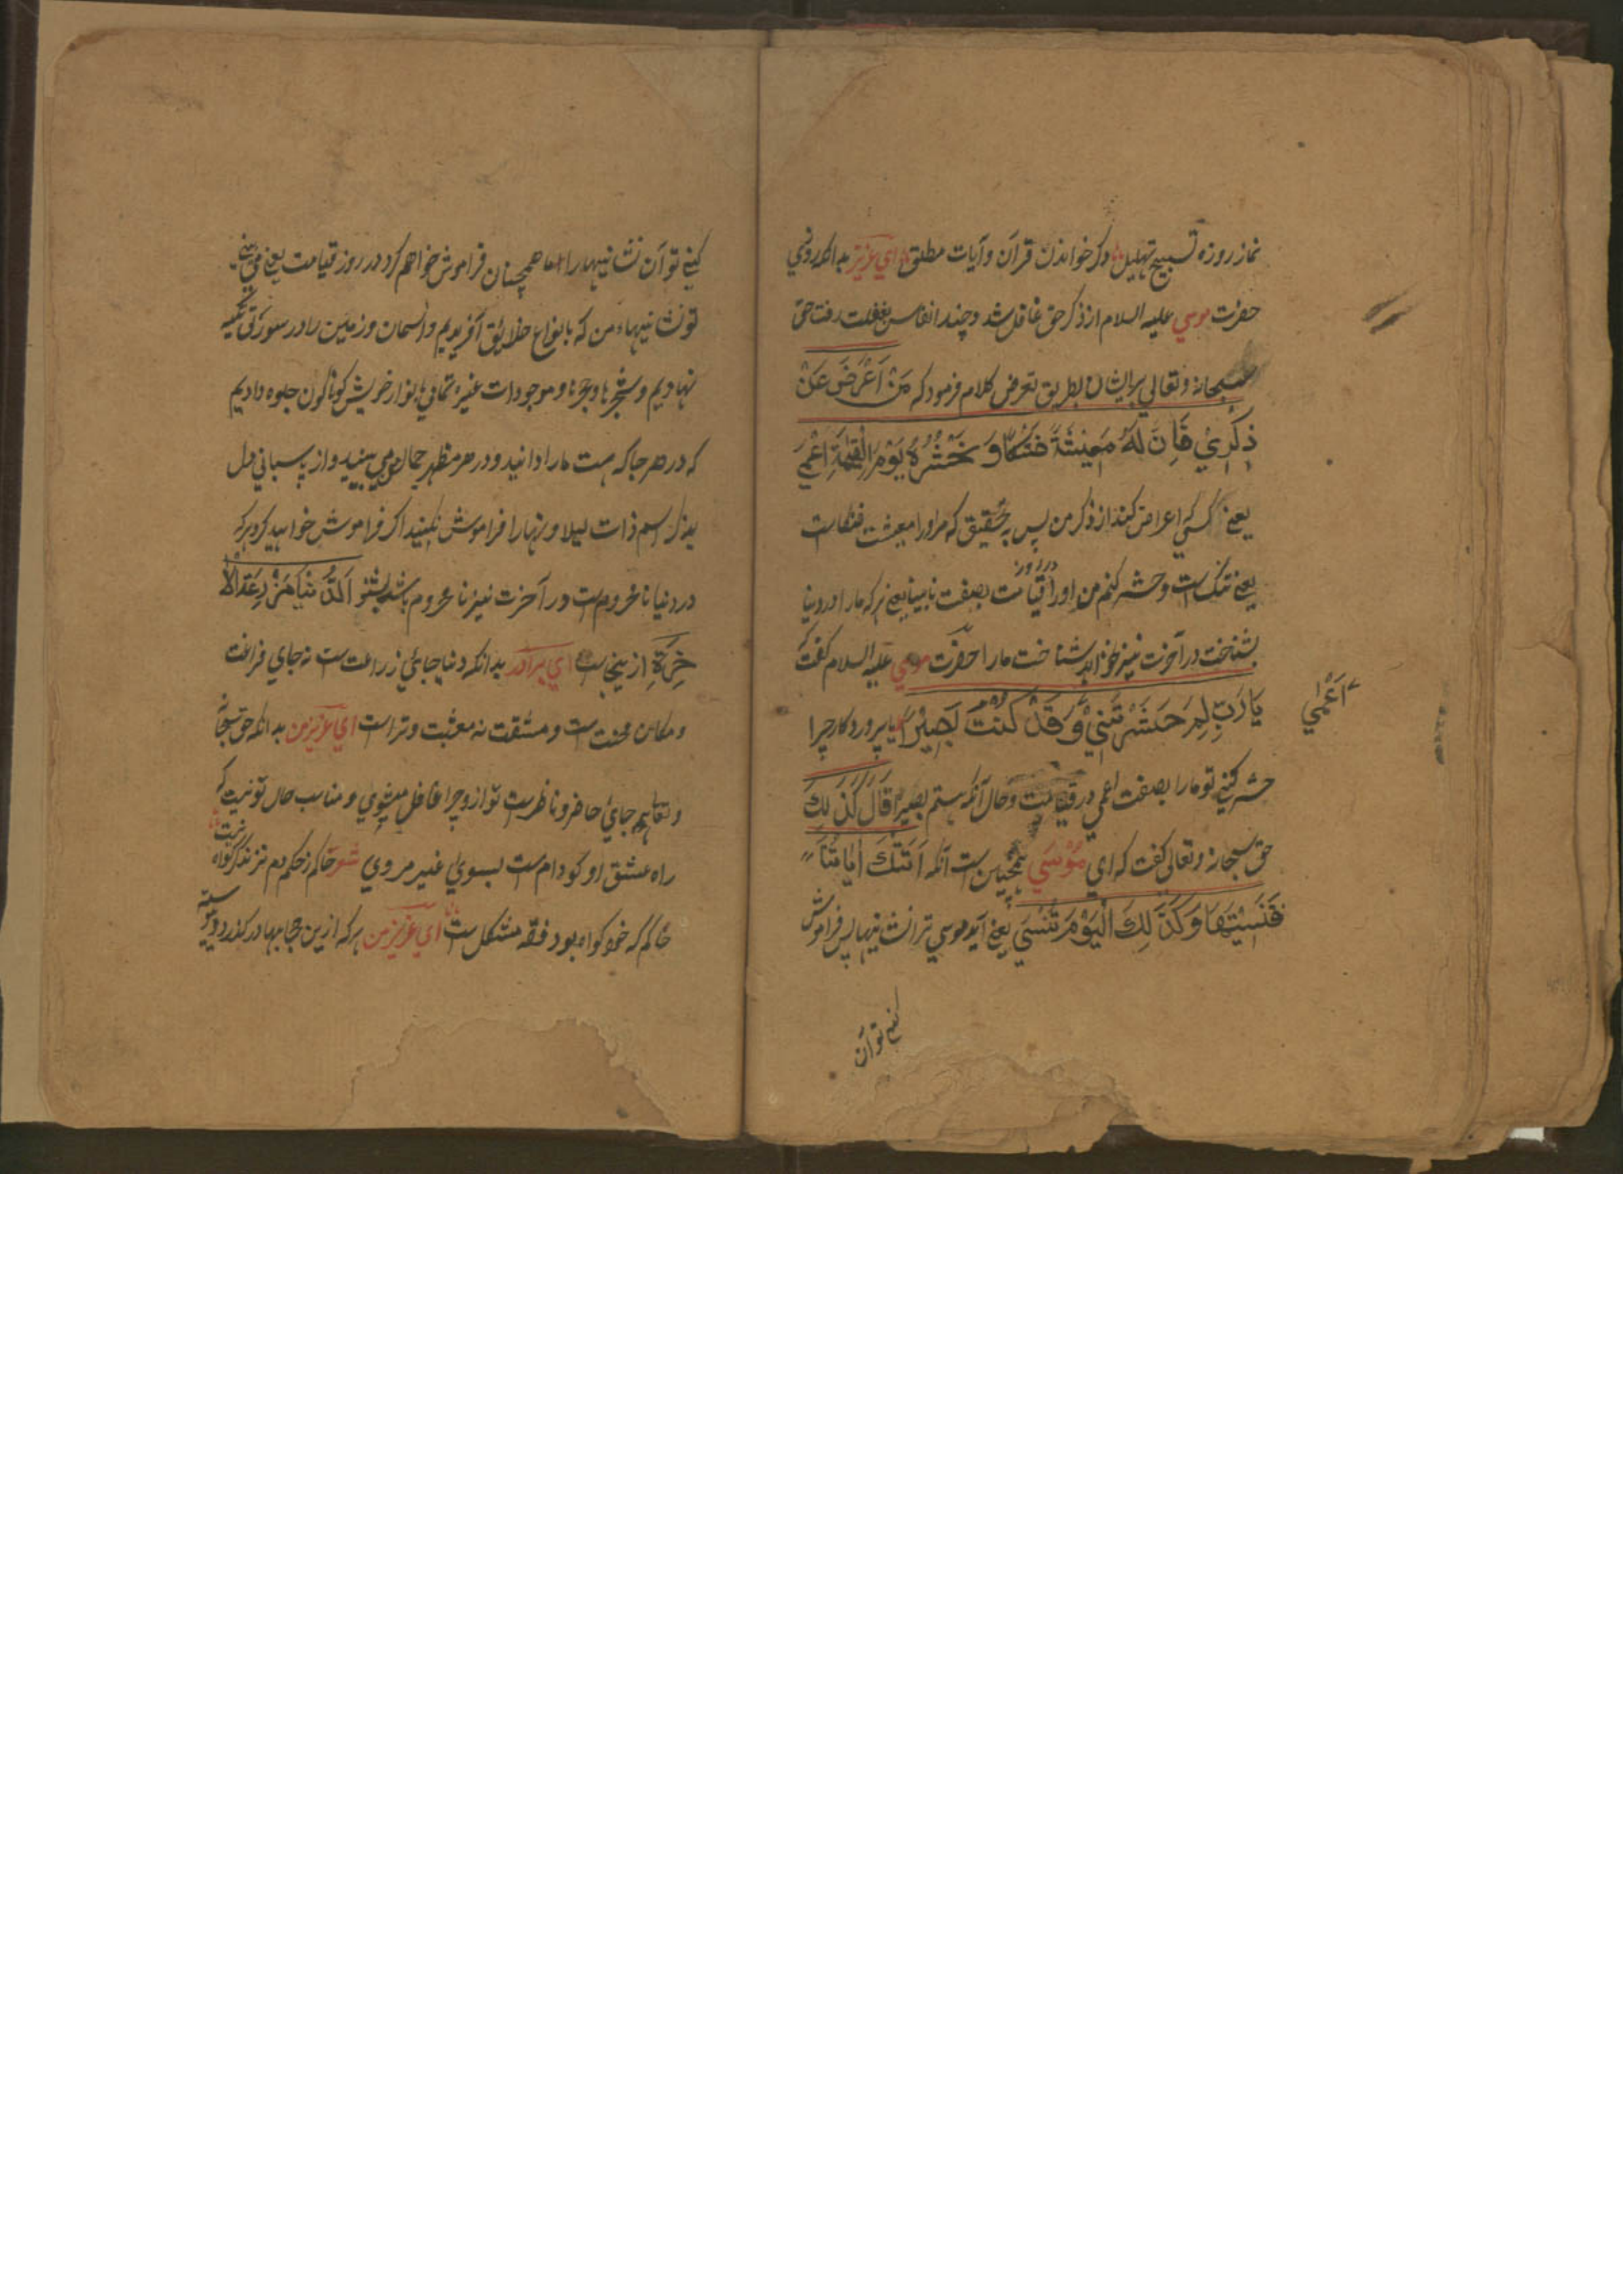 نماز روزه تسبیح تهلیل ذکر خواندن قرآن و آیات مطلق ای عزیز بدانکه روزی
حضرت موسی علیه السلام از ذکر حق غافل شد و چند انفاس بغفلت رفت حق
سبحانه و تعالی برایشان بطریق تعرض کلام فرمود که مَنْ اَعْرَضَ عَنْ
ذِكْرِيْ فَاِنَّ لَهُ مَعِيْشَةً ضَنْكًا وَ نَحْشُرُهُ يَوْمَ الْقِيٰمَةِ اَعْمٰي
یعنی کسی اعراض کند از ذکر من پس بتحقیق که مر اورا معیشت ضنکاست
یعنی تنک است و حشر کنم من اورا در روز قیامت بصفت نابینا یعنی هرکه مارا در دنیا
نشناخت در آخرت نیز نخواهد شناخت مارا حضرت موسی علیه السلام کفت
يَا رَبِّ لِمَ حَشَرْتَنِيْ اَعْمٰي وَ قَدْ كُنْتُ بَصِيْرًا یا پروردکار چرا
حشر کنی تو مارا بصفت اعمی در قیامت و حال آنکه هستم بصیر قَالَ كَذٰلِكَ
حق سبحانه و تعالی کفت که ای مُوْسٰي همچنین ست آنکه اَتَتْكَ اٰيَاتُنَا
فَنَسِيْتَهَا وَكَذٰلِكَ الْيَوْمَ تُنْسٰي یعنی آید موسی ترا نشانیها پس فراموش
کنی تو آن
کنی تو آن نشانیها را ما همچنان فراموش خواهم کرد در روز قیامت یعنی می بینی
تو نشانیهاء من که بانواع خلایق آفریدیم و آسمان و زمین را در
نهادیم و شجرها و حجرها و موجودات غیره تمامی بانوار خویش کوناکون جلوه دادیم
که در هر جا که هست مارا دانید و در هر مظهر جمال من می بینید و از پاسبانی دل
بذکر اسم ذات لیلا و نهارا فراموش نکنید اکر فراموش خواهید کرد هرکه
در دنیا نامحروم ست در آخرت نیز نامحروم باشد بشنو اَلدُّنْيَا مَزْرِعَةُ الْاٰ
خِرَةِ ازینجاست ای برادر بدانکه دنیا جائی زراعت ست نه جای فراغت
و مکان محنت ست و مشقت نه ای عزیز من بدانکه حق سبحانه
و تعالی همه جائ حاضر و ناظرست تو ازو چرا غافل میشوی و مناسب حال تو نیست که
راه عشق او کدام ست بسوی غیر می روی شعر حاکم ز حکم دم نزند کر کواه نیست
حاکم که خود کواه بود قصه مشکل ست ای عزیز من هرکه ازین حجابها در کذرد و پیوسته